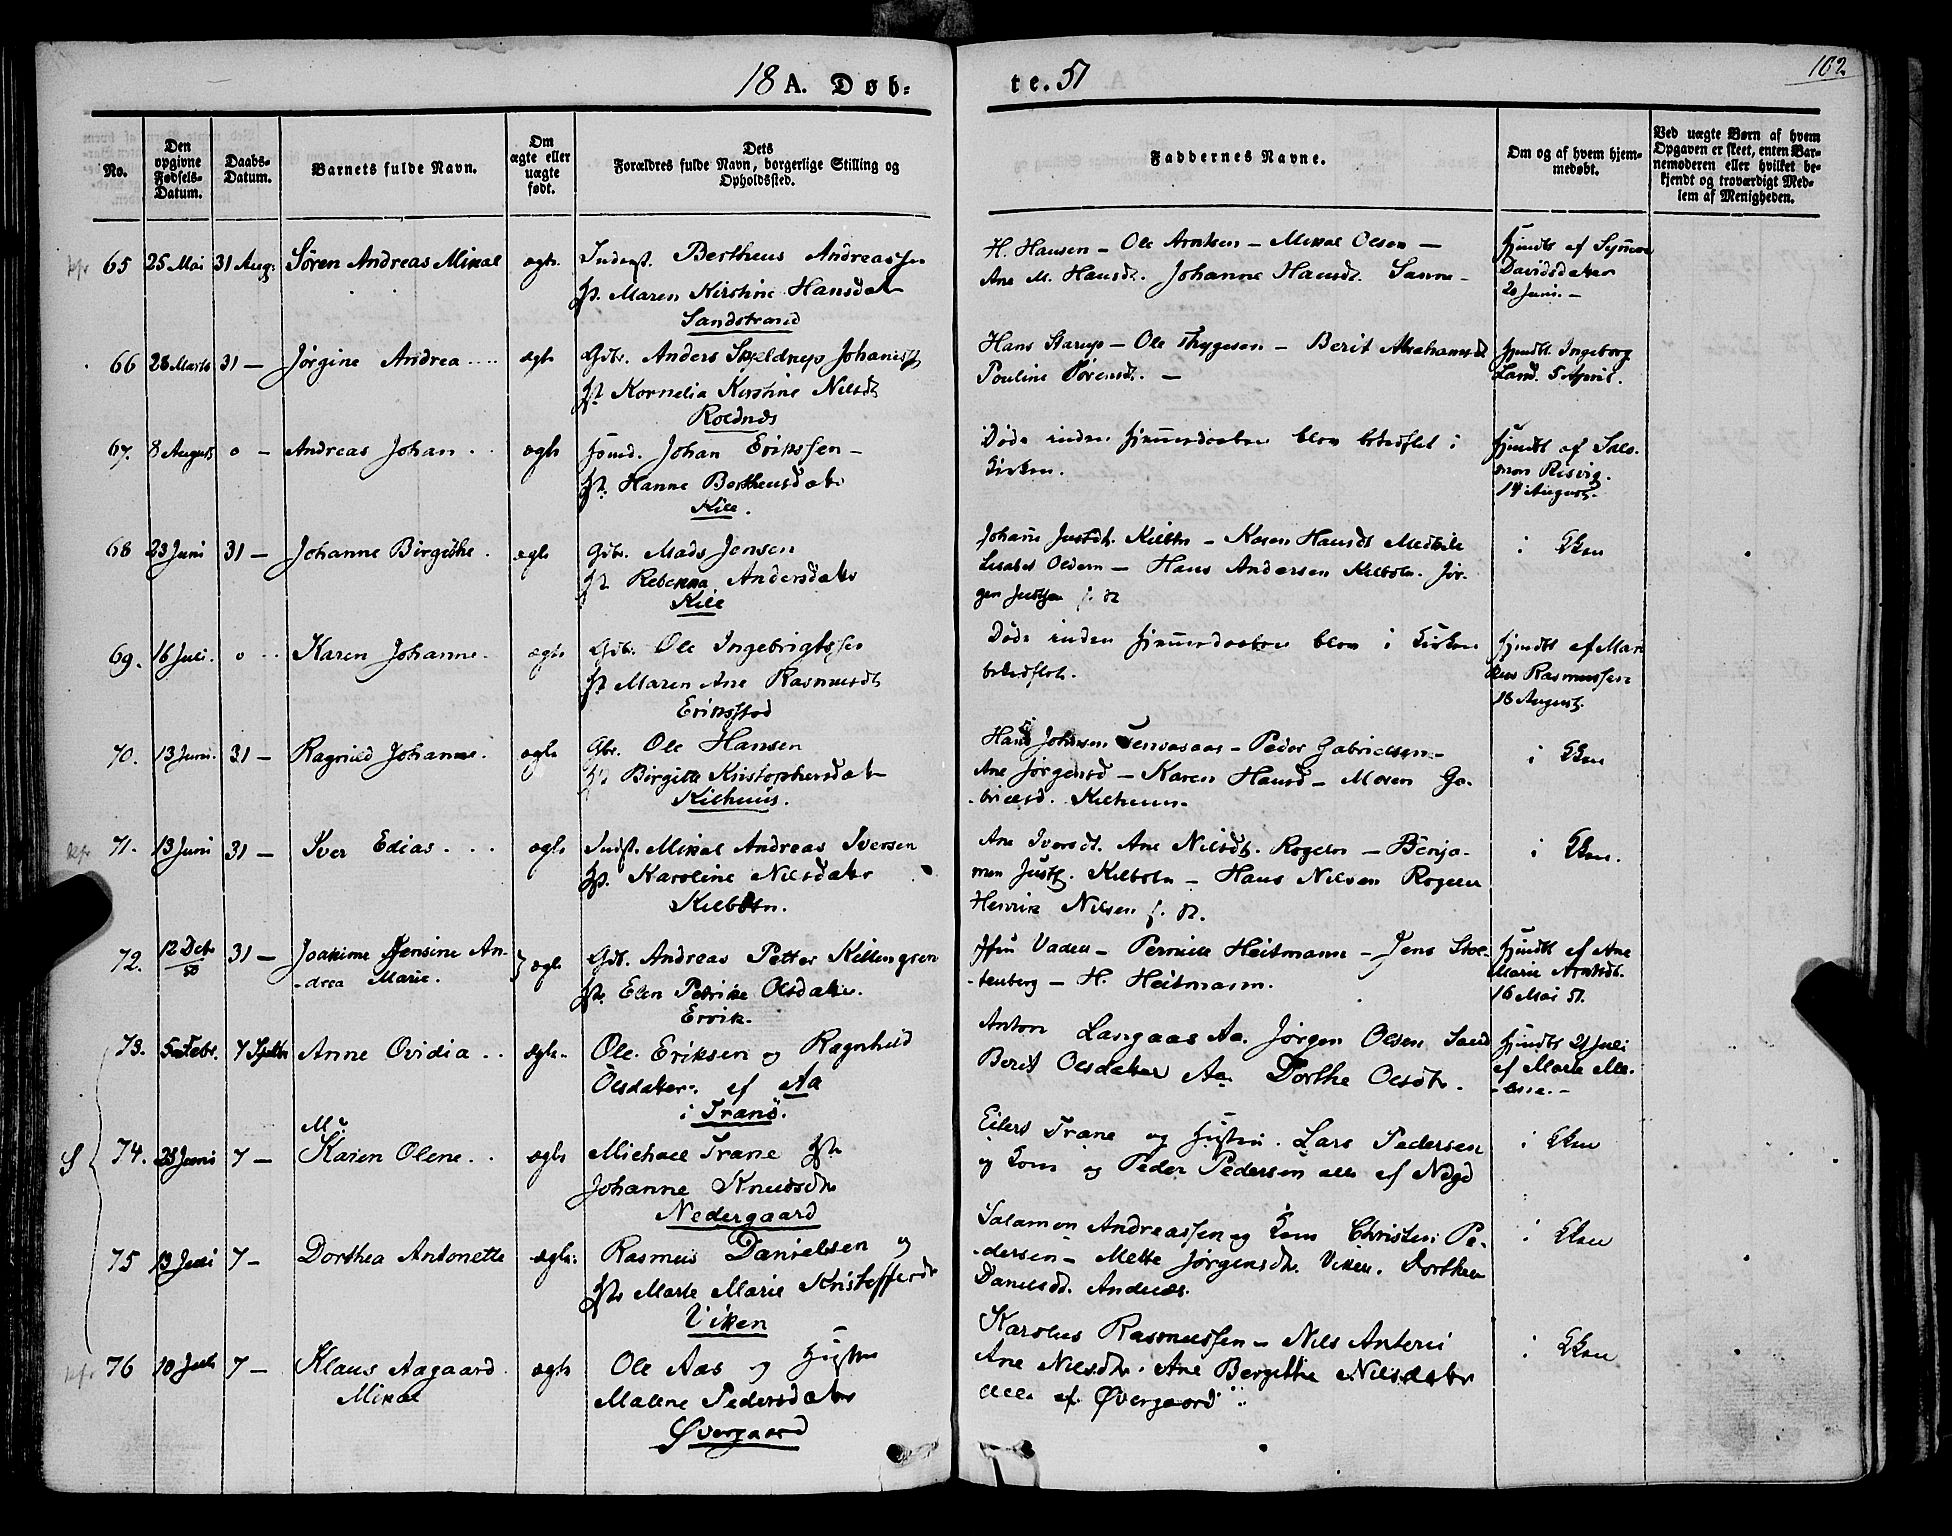 18 A. Døb:
te. 51
102
No.
Den opgivne Fødsels-Datum.
Daabs-Datum.
Barnets fulde Navn.
Om ægte eller uægte født.
Dets Forældres fulde Navn, borgerlige Stilling og Opholdssted.
Faddernes Navne.
Om og af hvem hjemmedøbt.
Ved uægte Børn af hvem Opgaven er skeet, enten Barnemoderen eller hvilket bekjendt og troværdigt Medlem af Menigheden.
65 25 Mai 31 Aug: Søren Andreas Mikal ægte
Inderst. Bertheus Andreassen
Maren Kirstine Hansdatr
Sandstrand
H. Hansen – Ole Arntsen – Mikal Olsen –
Ane M. Hansdt. Johanne Hansdt. Sanne –
Hjmdbt af
Davidsdatter
20 Juni. –
66 28 Marts 31 – Jørgine Andrea ægte
Gbr. Anders Skjeldrup Johaness
Kornelia Kirstine Nilsdt
Rollnæs
Hans Stærup – Ole Thygesen – Berit Abrahamsdt
Pouline Sørensdt. –
Hjmdbt Ingeborg
Land. 5 April.
67. 8 August o – Andreas Johan ægte
Johan Erikssen –
Hanne Bertheusdatr
Kile.
Døde inden blev bekræftet i
Kirken.
Hjmdbt af Salo-
mon Risvig.
14 August.
68 23 Juni 31 – Johanne Birgithe. ægte
Gbr. Mads Jensen
Rebekka Andersdatr
Kile
Johane Justdt. Kilbtn – Karen Hansdt
– Hans Andersen Kilbotn. Jør-
gen Justsen
i Kken
69. 16 Juli. o Karen Johanne. ægte
Gbr. Ole Ingebrigtsen
Maren Ane Rasmusdt
Eriksstad
Døde inden blev i Kirken
bekræftet.
Hjmdbt af Mari
Rasmussen
18 August.
70. 13 Juni. 31 – Ragnild Johanne. ægte
Gbr. Ole Hansen
Birgitte Kristophersdatr
Kilhuus.
Hans Johnsen – Peder Gabrielsen –
Ane Jørgensd – Karen Hansd – Maren Ga-
brielsd. Kilhuus.
i Kken
71. 13 Juni 31 – Iver Edias ægte
Indst. Mikal Andreas Iversen
Karoline Nilsdatr
Kilbotn.
Ane Iversdt. Ane Nilsdt. Rogeln – Benja-
min Justs. Kilbotn – Hans Nilsen Rogeln
Henrik Nilsen
i Kken.
72. 12 Decbr 50 31 – Joakime Jensine An-
drea Marie. ægte
Gbr. Andreas Petter Killengren
Elen Petrike Olsdatr.
Ervik.
– Pernille Heitmann – Jens Stol-
tenberg – H. Heitmann.
Hjmdbt af Ane
Marie Arntsdt.
16 Mai 51.
73. 5 Febr. 7 Septbr Anne Ovidia ægte
Ole Eriksen og Ragnhild
Olsdatter. af Aa
i Tranø.
Anton Langaas Aa. Jørgen Olsen Sand
Berit Olsdatter Aa. Dorthe Olsdtr.
Hjmdbt 21 Juli
af Marie
S
74. 28 Juni 7 – Karen Olene ægte
Michael Trane
Johanne Knudsdtr
Nedergaard
Eilert Trane og Hustru. Lars Pedersen
og Kone og Peder Pedersen alle af Ndgd
i Kken
75 13 Juni 7 – Dorthea Antonette ægte
Rasmus Danielsen og
Marte Marie Kristoffersdr
Viken
Salamon Andreassen og Kone Christen Pe-
dersen – Mette Jørgensdtr. Viken. Dorthea
Danielsdt. Andnæs.
i Kken
76 10 Juli 7 – Klaus Aagaard
Mikal ægte
Ole Aas og Hustru
Malene Pedersdatr
Øvergaard
Karolus Rasmussen – Nils Anteni
Ane Nilsdtr. Ane Bergitthe Nilsdatr
alle af Øvergaard
i Kken